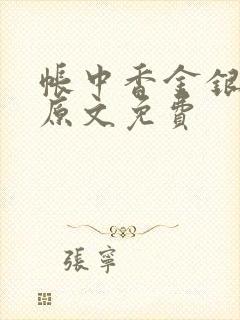 帳中香金銀
原文免費
張寧